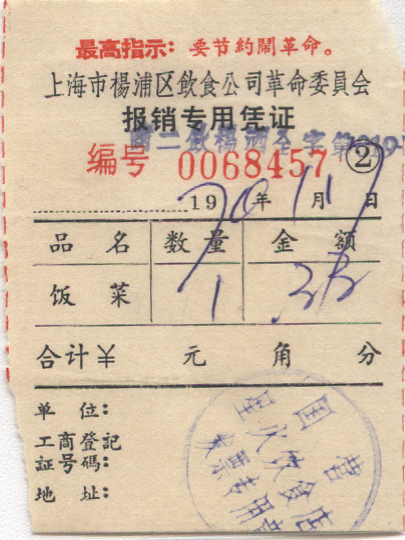 最高指示：要节約閙革命。
上海市楊浦区飲食公司革命委員会
报销专用凭证
编号 0068457 ②
19 70 年 月 日
品名 数量 金额
饭菜 1
合计￥ 元 角 分
单位：
工商登記
証号碼：
地址：